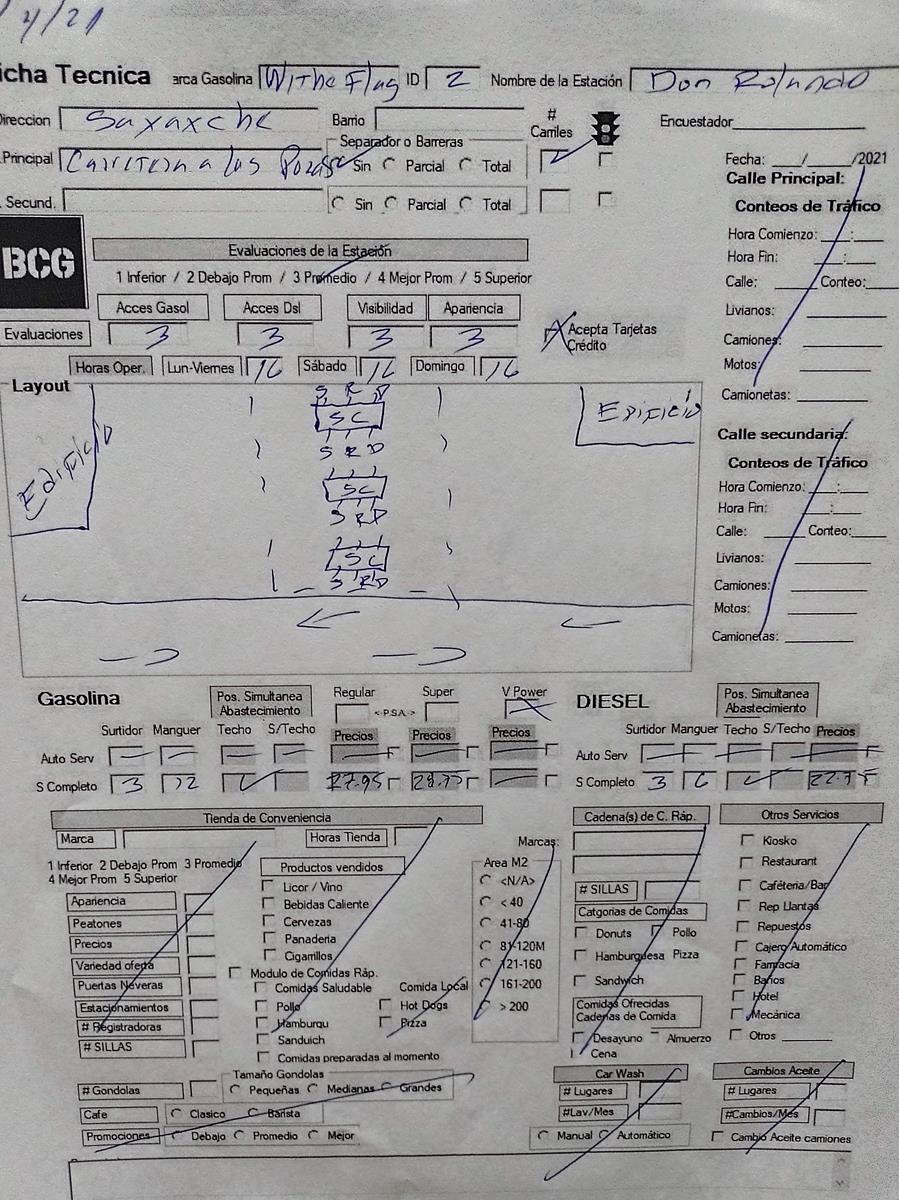 4/21
icha Tecnica arca Gasolina Withe Flag ID 2 Nombre de la Estación Don Rolando
Direccion Saxaxche Barrio # Carriles Encuestador
Separador o Barreras
Principal Carretera a las Pozas Sin Parcial Total 2 Fecha: / /2021
. Secund. Sin Parcial Total
Calle Principal:
Conteos de Tráfico
Hora Comienzo: :
Hora Fin: :
Calle: Conteo:
Livianos:
Camiones:
Motos:
Camionetas:
BCG
Evaluaciones de la Estación
1 Inferior / 2 Debajo Prom / 3 Promedio / 4 Mejor Prom / 5 Superior
Acces Gasol Acces Dsl Visibilidad Apariencia
Evaluaciones 3 3 3 3 X Acepta Tarjetas Crédito
Horas Oper. Lun-Viernes 16 Sábado 16 Domingo 16
Layout
Edificio
S R D
SC
S R D
SC
S R D
SC
S R D
Edificio
Calle secundaria:
Conteos de Tráfico
Hora Comienzo: :
Hora Fin: :
Calle: Conteo:
Livianos:
Camiones:
Motos:
Camionetas:
Gasolina Pos. Simultanea Abastecimiento Regular <-PSA-> Super V Power
Surtidor Manguer Techo S/Techo Precios Precios Precios
Auto Serv
S Completo 3 12 27.95
DIESEL Pos. Simultanea Abastecimiento
Surtidor Manguer Techo S/Techo Precios
Auto Serv
S Completo 3 6
Tienda de Conveniencia
Marca Horas Tienda
1 Inferior 2 Debajo Prom 3 Promedio
4 Mejor Prom 5 Superior
Apariencia
Peatones
Precios
Variedad oferta
Puertas Neveras
Estacionamientos
# Registradoras
# SILLAS
Productos vendidos
Licor / Vino
Bebidas Caliente
Cervezas
Panaderia
Cigarrillos
Modulo de Comidas Ráp.
Comidas Saludable Comida Local
Pollo Hot Dogs
Hamburqu Pizza
Sanduich
Comidas preparadas al momento
Marcas:
Area M2
<N/A>
< 40
41-80
81-120M
121-160
161-200
> 200
# Gondolas
Tamaño Gondolas
Pequeñas Medianas Grandes
Cafe Clasico Barista
Promociones Debajo Promedio Mejor
Cadena(s) de C. Ráp.
# SILLAS
Catgorias de Comidas
Donuts Pollo
Hamburguesa Pizza
Sandwich
Comidas Ofrecidas
Cadenas de Comida
Desayuno Almuerzo
Cena
Otros Servicios
Kiosko
Restaurant
Caféteria/Bar
Rep Llantas
Repuestos
Cajero Automático
Farmacia
Baños
Hotel
Mecánica
Otros
Car Wash
# Lugares
#Lav/Mes
Manual Automático
Cambios Aceite
# Lugares
#Cambios/Mes
Cambio Aceite camiones